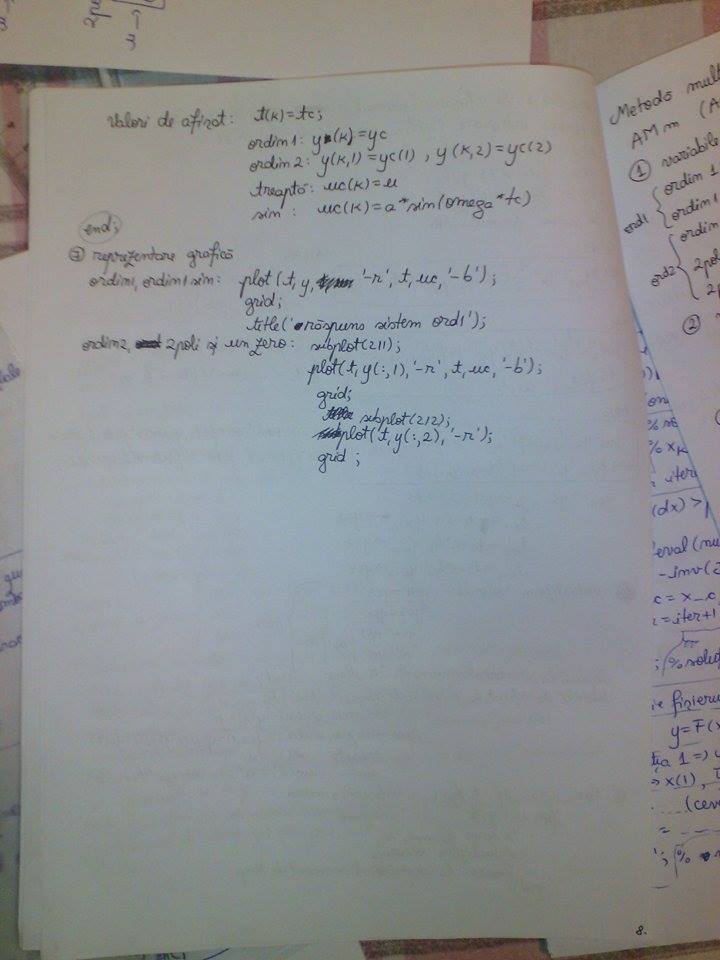 Valori de afișat: t(k)=tc;
ordin1: y(k)=yc
ordin2: y(k,1)=yc(1), y(k,2)=yc(2)
treaptă: uc(k)=u
sin: uc(k)=a*sin(omega*tc)
end;
⑦ reprezentare grafică
ordin1, ordin1 sin: plot(t,y,'-r',t,uc,'-b');
grid;
title('răspuns sistem ord1');
ordin2, 2poli și un zero: subplot(211);
plot(t,y(:,1),'-r',t,uc,'-b');
grid;
subplot(212);
plot(t,y(:,2),'-r');
grid;
8.
Metodo
AMm (A
① variabile
ord1
ordin 1
ordin 1
ord2
ordin
2pol
2p
②
% x_k
iter
(dx) >
eval(nu
-inv(
c = x_c
=iter+1
; % soluț
fișieru
y=F(x
1 =>
=> x(1),
(cev
=
'; %